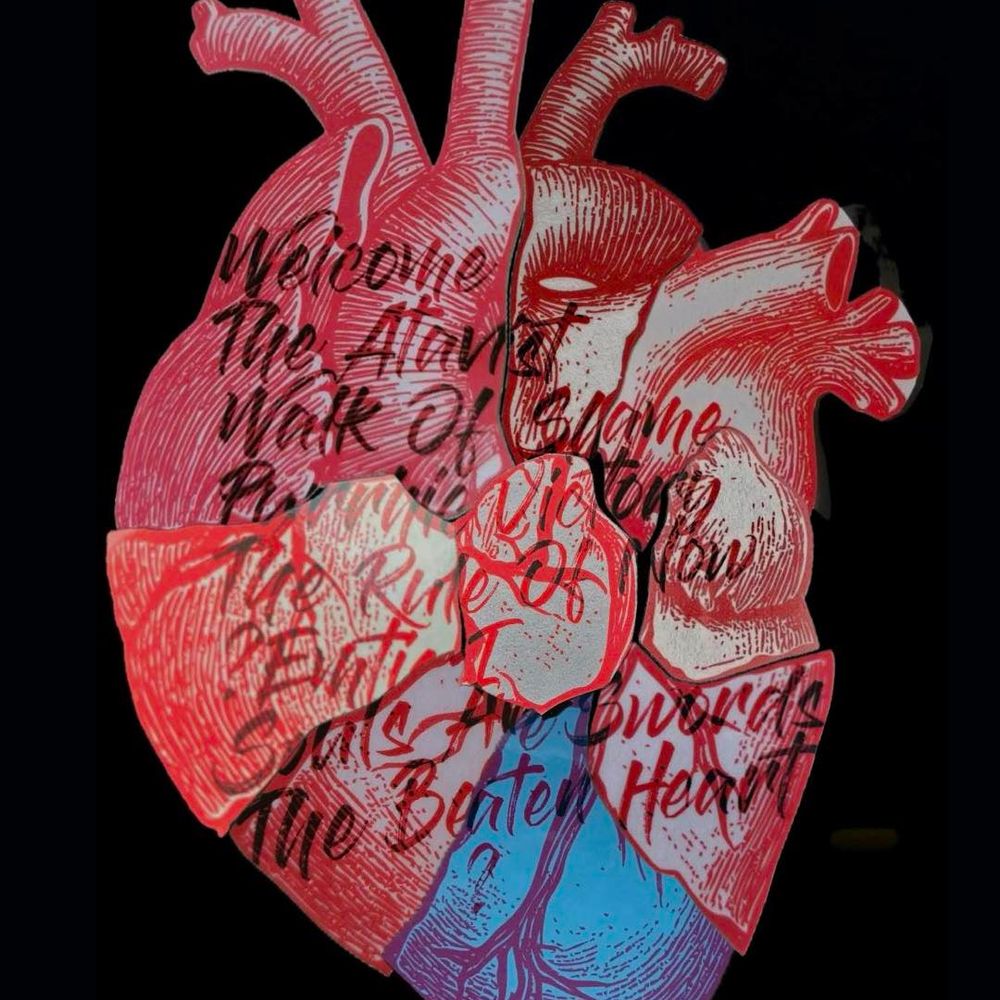 Welcome
The Atavist
Walk Of Shame
Pyrrhic Victory
The Rule Of Now
Souls Are Swords
The Beaten Heart
?